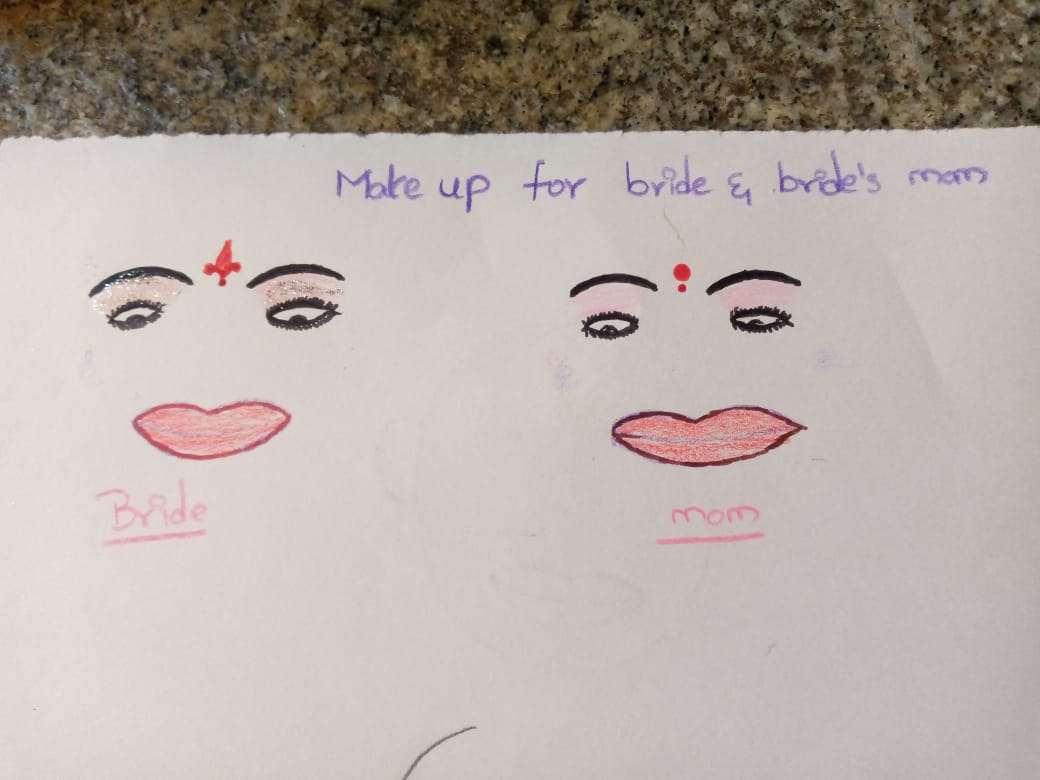 Make up for bride & bride's mom
Bride
mom